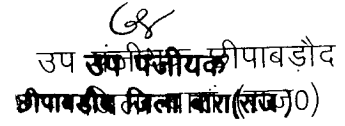 उप पंजीयक छीपाबड़ौद
उप पंजीयक
छीपाबड़ौद जिला बारां (राज0)